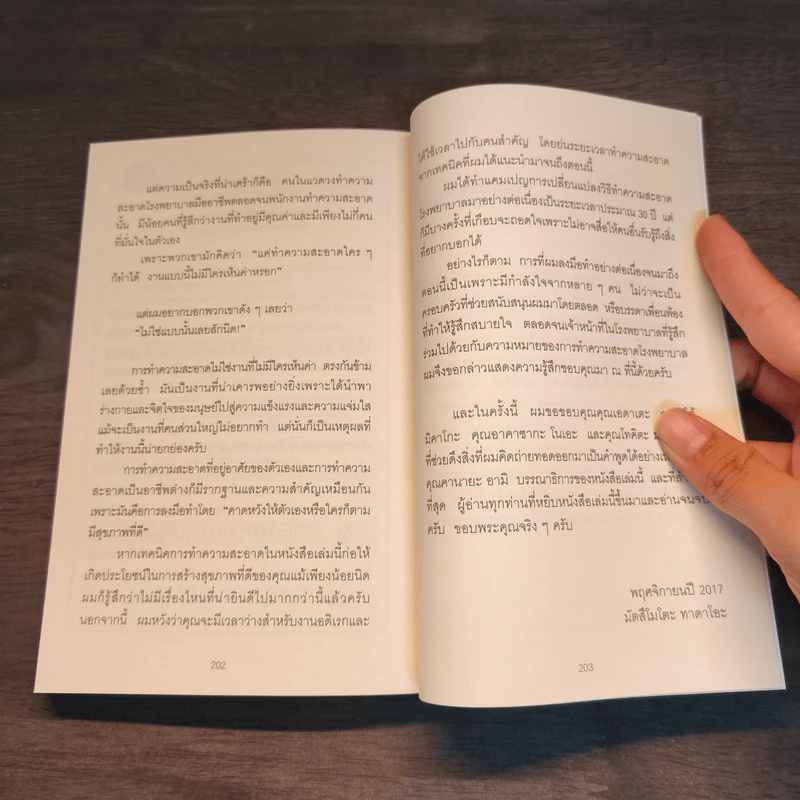 แต่ความเป็นจริงที่น่าเศร้าก็คือ คนในแวดวงทำความ
สะอาดโรงพยาบาลมืออาชีพตลอดจนพนักงานทำความสะอาด
นั้น มีน้อยคนที่รู้สึกว่างานที่ทำอยู่มีคุณค่าและมีเพียงไม่กี่คน
ที่มั่นใจในตัวเอง
เพราะพวกเขามักคิดว่า “แค่ทำความสะอาดใคร ๆ
ก็ทำได้ งานแบบนี้ไม่มีใครเห็นค่าหรอก”
แต่ผมอยากบอกพวกเขาดัง ๆ เลยว่า
“ไม่ใช่แบบนั้นเลยสักนิด!”
การทำความสะอาดไม่ใช่งานที่ไม่มีใครเห็นค่า ตรงกันข้าม
เลยด้วยซ้ำ มันเป็นงานที่น่าเคารพอย่างยิ่งเพราะได้นำพา
ร่างกายและจิตใจของมนุษย์ไปสู่ความแข็งแรงและความแจ่มใส
แม้จะเป็นงานที่คนส่วนใหญ่ไม่อยากทำ แต่นั่นก็เป็นเหตุผลที่
ทำให้งานนี้น่ายกย่องครับ
การทำความสะอาดที่อยู่อาศัยของตัวเองและการทำความ
สะอาดเป็นอาชีพต่างก็มีรากฐานและความสำคัญเหมือนกัน
เพราะมันคือการลงมือทำโดย “คาดหวังให้ตัวเองหรือใครก็ตาม
มีสุขภาพที่ดี”
หากเทคนิคการทำความสะอาดในหนังสือเล่มนี้ก่อให้
เกิดประโยชน์ในการสร้างสุขภาพที่ดีของคุณแม้เพียงน้อยนิด
ผมก็รู้สึกว่าไม่มีเรื่องไหนที่น่ายินดีไปมากกว่านี้แล้วครับ
นอกจากนี้ ผมหวังว่าคุณจะมีเวลาว่างสำหรับงานอดิเรกและ
202
ได้ใช้เวลาไปกับคนสำคัญ โดยย่นระยะเวลาทำความสะอาด
จากเทคนิคที่ผมได้แนะนำมาจนถึงตอนนี้
ผมได้ทำแคมเปญการเปลี่ยนแปลงวิธีทำความสะอาด
โรงพยาบาลมาอย่างต่อเนื่องเป็นระยะเวลาประมาณ 30 ปี แต่
ก็มีบางครั้งที่เกือบจะถอดใจเพราะไม่อาจสื่อให้คนอื่นรับรู้ถึงสิ่ง
ที่อยากบอกได้
อย่างไรก็ตาม การที่ผมลงมือทำอย่างต่อเนื่องจนมาถึง
ตอนนี้เป็นเพราะมีกำลังใจจากหลาย ๆ คน ไม่ว่าจะเป็น
ครอบครัวที่ช่วยสนับสนุนผมมาโดยตลอด หรือบรรดาเพื่อนพ้อง
ที่ทำให้รู้สึกสบายใจ ตลอดจนเจ้าหน้าที่ในโรงพยาบาลที่รู้สึก
ร่วมไปด้วยกับความหมายของการทำความสะอาดโรงพยาบาล
ผมจึงขอกล่าวแสดงความรู้สึกขอบคุณมา ณ ที่นี้ด้วยครับ
และในครั้งนี้ ผมขอขอบคุณคุณเอดาเตะ
มิคาโกะ คุณอาคาซากะ โนเอะ และคุณโทคิตะ
ที่ช่วยดึงสิ่งที่ผมคิดถ่ายทอดออกมาเป็นคำพูดได้อย่าง
คุณคานายะ อามิ บรรณาธิการของหนังสือเล่มนี้ และที่
ที่สุด ผู้อ่านทุกท่านที่หยิบหนังสือเล่มนี้ขึ้นมาและอ่านจนจบ
ครับ ขอบพระคุณจริง ๆ ครับ
พฤศจิกายนปี 2017
มัตสึโมโตะ ทาดาโอะ
203